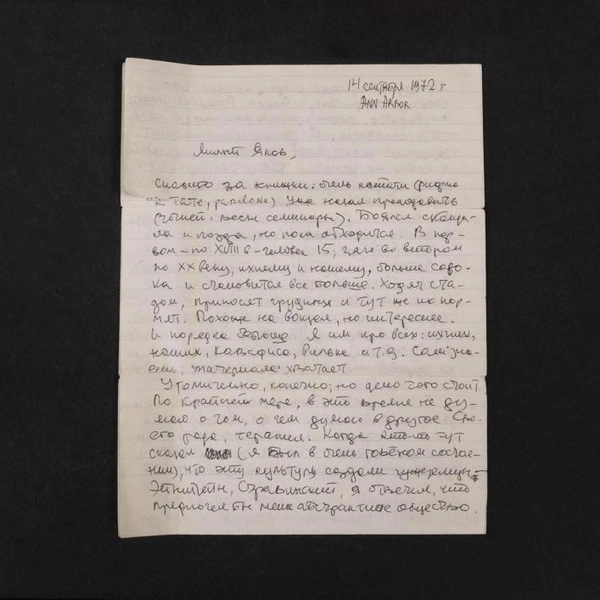 14 сентября 1972 г
ANN ARBOR
Милый Яков,
Спасибо за книжки: очень кстати
Уже начал преподавать
семинары). Боялся сканда-
ла и позора, но пока обходится. В пер-
вом - по XVIII в - человек 15, зато во втором
по XX веку, ихнему и нашему, больше соро-
ка и становится все больше. Ходят ста-
дом, приносят грудных и тут же их кор-
мят. Похоже на вокзал, но интереснее.
И порядка больше. Я им про всех: ихних,
наших, Кавафиса, Рильке и т.д.
материала хватает
Утомительно, конечно, но дело того стоит.
По крайней мере, в это время не ду-
маю о том, о чем думаю в другое. Сво-
его рода, терапия. Когда кто-то тут
сказал (я был в очень говёном состоя-
нии), что эту культуру создали чужеземцы -
Эйнштейн, Стравинский, я ответил, что
предпочел бы менее абстрактное общество.